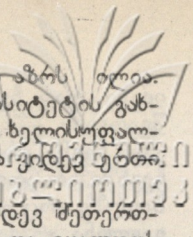 აზრს ილია.
სიტეტის გახ-
ხელისუფალ-
კიდევ ერთი
დევ მეთერთ-